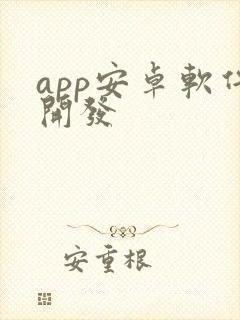 app安卓軟件
開發
安重根